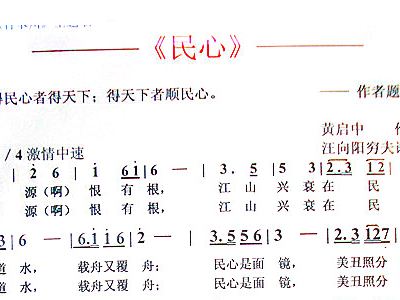 《民心》
民心者得天下；得天下者顺民心。
—— 作者题
黄启中
/ 4 激情中速
汪向阳穷夫
| 2̇ 6 | 1̇ 6̲1̲̇ | 6 — | 3 . 5 | 5 3 | 2̲.̲ 3̲ 1̲2̲ |
源（啊） 恨 有 根， 江 山 兴 衰 在 民
源（啊） 恨 有 根， 江 山 兴 衰 在 民
3 | 6 — | 6̲.̲1̲̇ 1̲̇6̲ | 2̇ — | 3̲.̲5̲ 5̲6̲ | 3 — | 2̲.̲3̲ 1̲2̲7̲ |
水， 载舟又覆 舟； 民心是面 镜， 美丑照分
水， 载舟又覆 舟； 民心是面 镜， 美丑照分